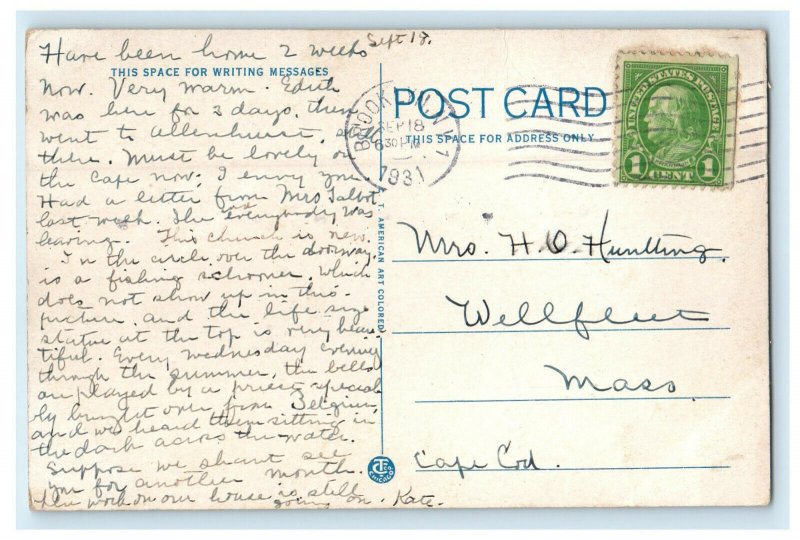 Sept 18.
Have been home 2 weeks
THIS SPACE FOR WRITING MESSAGES
now. Very warm. Edith
was here for 3 days, then
went to Allenhurst, still
there. Must be lovely on
the Cape now; I envy you.
Had a letter from Mrs Talbot
last week. She said everybody was
leaving. This church is new.
In the circle over the doorway
is a fishing schooner, which
does not show up in this
picture, and the life size
statue at the top is very beau-
tiful. Every Wednesday evening
through the summer, the bells
are played by a priest special
ly brought over from Belgium,
and we heard them sitting in
the dark across the water.
Suppose we shant see
you for another month.
The work on our house is still
going on. Kate.
POST CARD
THIS SPACE FOR ADDRESS ONLY
BROOKLYN
SEP 18
630 PM
1931
UNITED STATES POSTAGE
1 CENT 1
C. T. AMERICAN ART COLORED
Mrs. H. O. Huntting.
Wellfleet
Mass.
Cape Cod.
CHICAGO